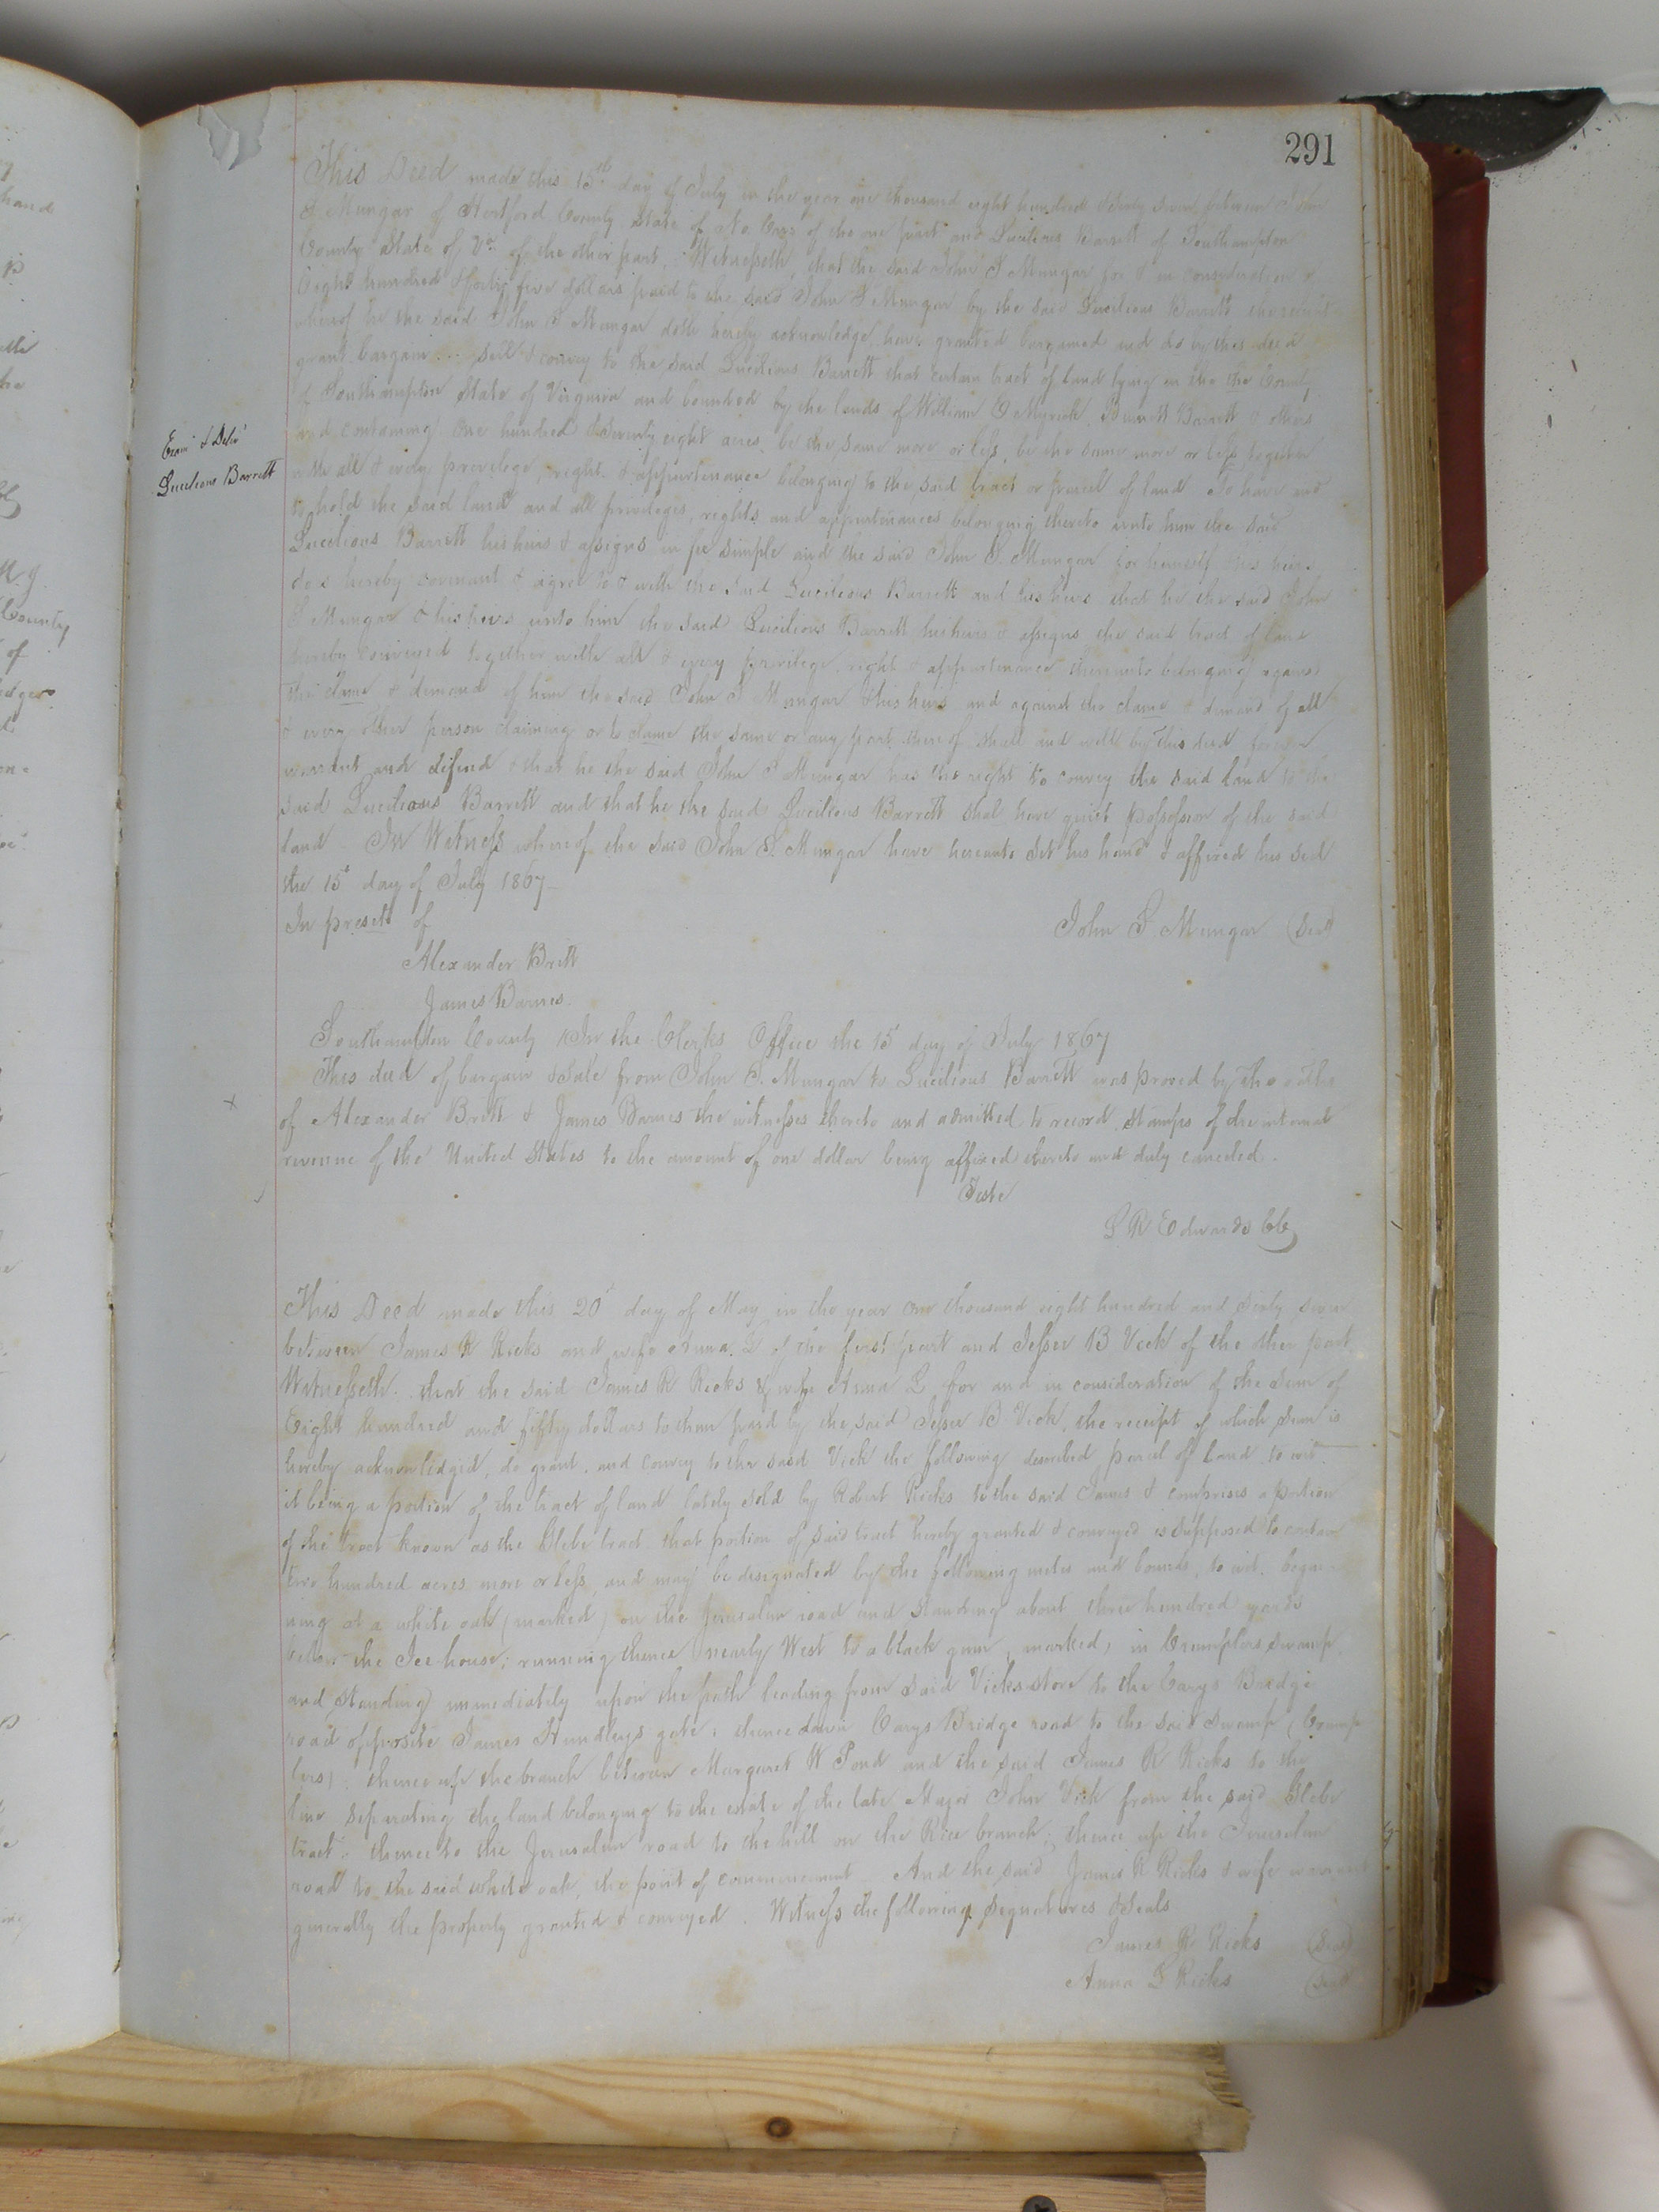 291
This Deed made this 15th day of July in the year one thousand eight hundred & sixty seven between John
S Mungar of Hertford County State of No. Car. of the one part and Lucilious Barrett of Southampton
County State of Va. of the other part. Witnesseth, that the said John S Mungar for & in consideration of
Eight hundred & forty five dollars paid to the said John S Mungar by the said Lucilious Barrett the receipt
whereof he the said John S Mungar doth hereby acknowledge, have granted bargained and do by this deed
grant bargain sell & convey to the said Lucilious Barrett that certain tract of land lying in the the County
of Southampton State of Virginia and bounded by the lands of William O Myrick, Burnett Barrett & others
and containing One hundred & seventy eight acres, be the same more or less, be the same more or less, together
with all & every privelege, right & appurtenance belonging to the said tract or parcel of land To have and
to hold the said land and all priveleges, rights and appurtenances belonging thereto unto him the said
Lucilious Barrett his heirs & assigns in fee simple and the said John S. Mungar for himself & his heirs
does hereby covenant & agree to & with the said Lucilious Barrett and his heirs that he the said John
S Mungar & his heirs unto him the said Lucilious Barrett his heirs & assigns the said tract of land
hereby conveyed together with all & every privilege, right & appurtenance thereunto belonging against
the clame & demand of him the said John S Mungar & his heirs and against the clame & demand of all
& every other person claiming or to clame the same or any part thereof shall and will by this deed forever
warrant and defend & that he the said John S Mungar has the right to convey the said land to the
said Lucilious Barrett and that he the said Lucilious Barrett shal have quiet possession of the said
land In Witness whereof the said John S. Mungar have hereunto set his hand & affixed his seal
the 15th day of July 1867
In presets of
John S. Mungar (Seal)
Alexander Britt
James Barnes
Exam & Delivd
Lucilious Barrett
Southampton County In the Clerks Office the 15 day of July 1867
This deed of bargain & Sale from John S. Mungar to Lucilious Barrett was proved by the oaths
of Alexander Britt & James Barnes the witnesses thereto and admitted to record, Stamps of the internal
revenue of the United States to the amount of one dollar being affixed thereto and duly canceled.
Teste
L R Edwards Clk
This Deed made this 20th day of May in the year One thousand eight hundred and Sixty Seven
between James R Ricks and wife Anna L of the first part and Jesse B Vick of the other part
Witnesseth. that the said James R Ricks & wife Anna L for and in consideration of the sum of
Eight hundred and fifty dollars to them paid by the said Jesse B Vick, the receipt of which sum is
hereby acknowledged, do grant, and convey to the said Vick the following described parcel of Land, to wit
it being a portion of the tract of land lately sold by Robert Ricks to the said James & comprises a portion
of the tract known as the Glebe tract. that portion of said tract hereby granted & conveyed is supposed to contain
two hundred acres more or less, and may be designated by the following metes and bounds, to wit, begin-
ning at a white oak (marked) on the Jerusalem road and standing about three hundred yards
below the Ice house; running thence nearly West to a black gum (marked) in Crumplers swamp
and standing immediately upon the path leading from said Vicks store to the Carys Bridge
road opposite James Hundleys gate; thence down Carys Bridge road to the said Swamp (Crump
lers). thence up the branch between Margaret W Pond and the said James R Ricks to the
line separating the land belonging to the estate of the late Major John Vick from the said Glebe
tract; thence to the Jerusalem road to the hill on the Rice branch; thence up the Jerusalem
road to the said white oak, the point of commencement And the said James R Ricks & wife warrant
generally the property granted & conveyed. Witness the following signatures & Seals
James R Ricks (Seal)
Anna L Ricks (Seal)